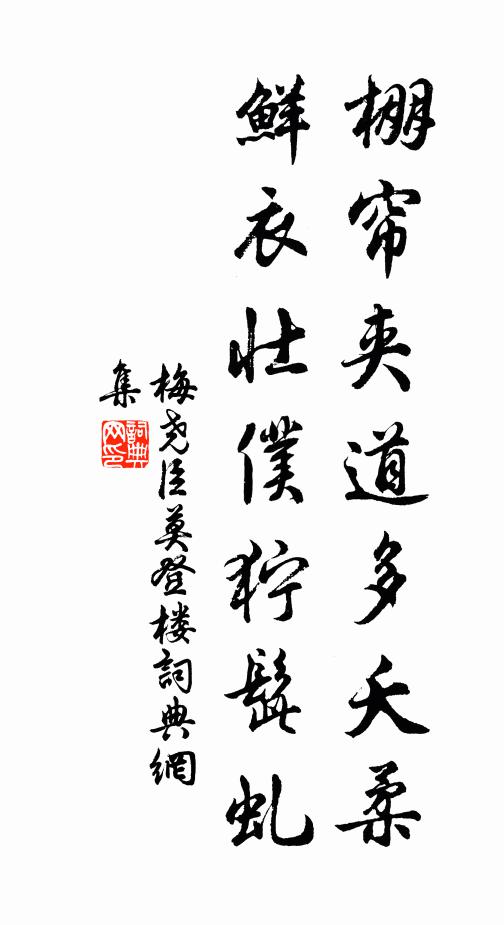 棚帘夹道多夭柔
鲜衣壮僕狞髭虬
梅尧臣莫登楼詞典網
集
詞典网印